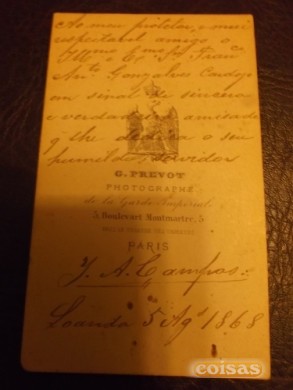 Ao meu protetor, e meu
respeitavel amigo o
Illmo Exmo Sr. Franco
Anto Gonçalves Cardozo
em signal de sincera
e verdadeira amizade
q lhe dedica o seu
humilde servidor
G. PREVOT
PHOTOGRAPHE
de la Garde Impérial
5, Boulevart Montmartre, 5
PARIS
J. A. Campos
Loanda 5 Agto 1868
coisas